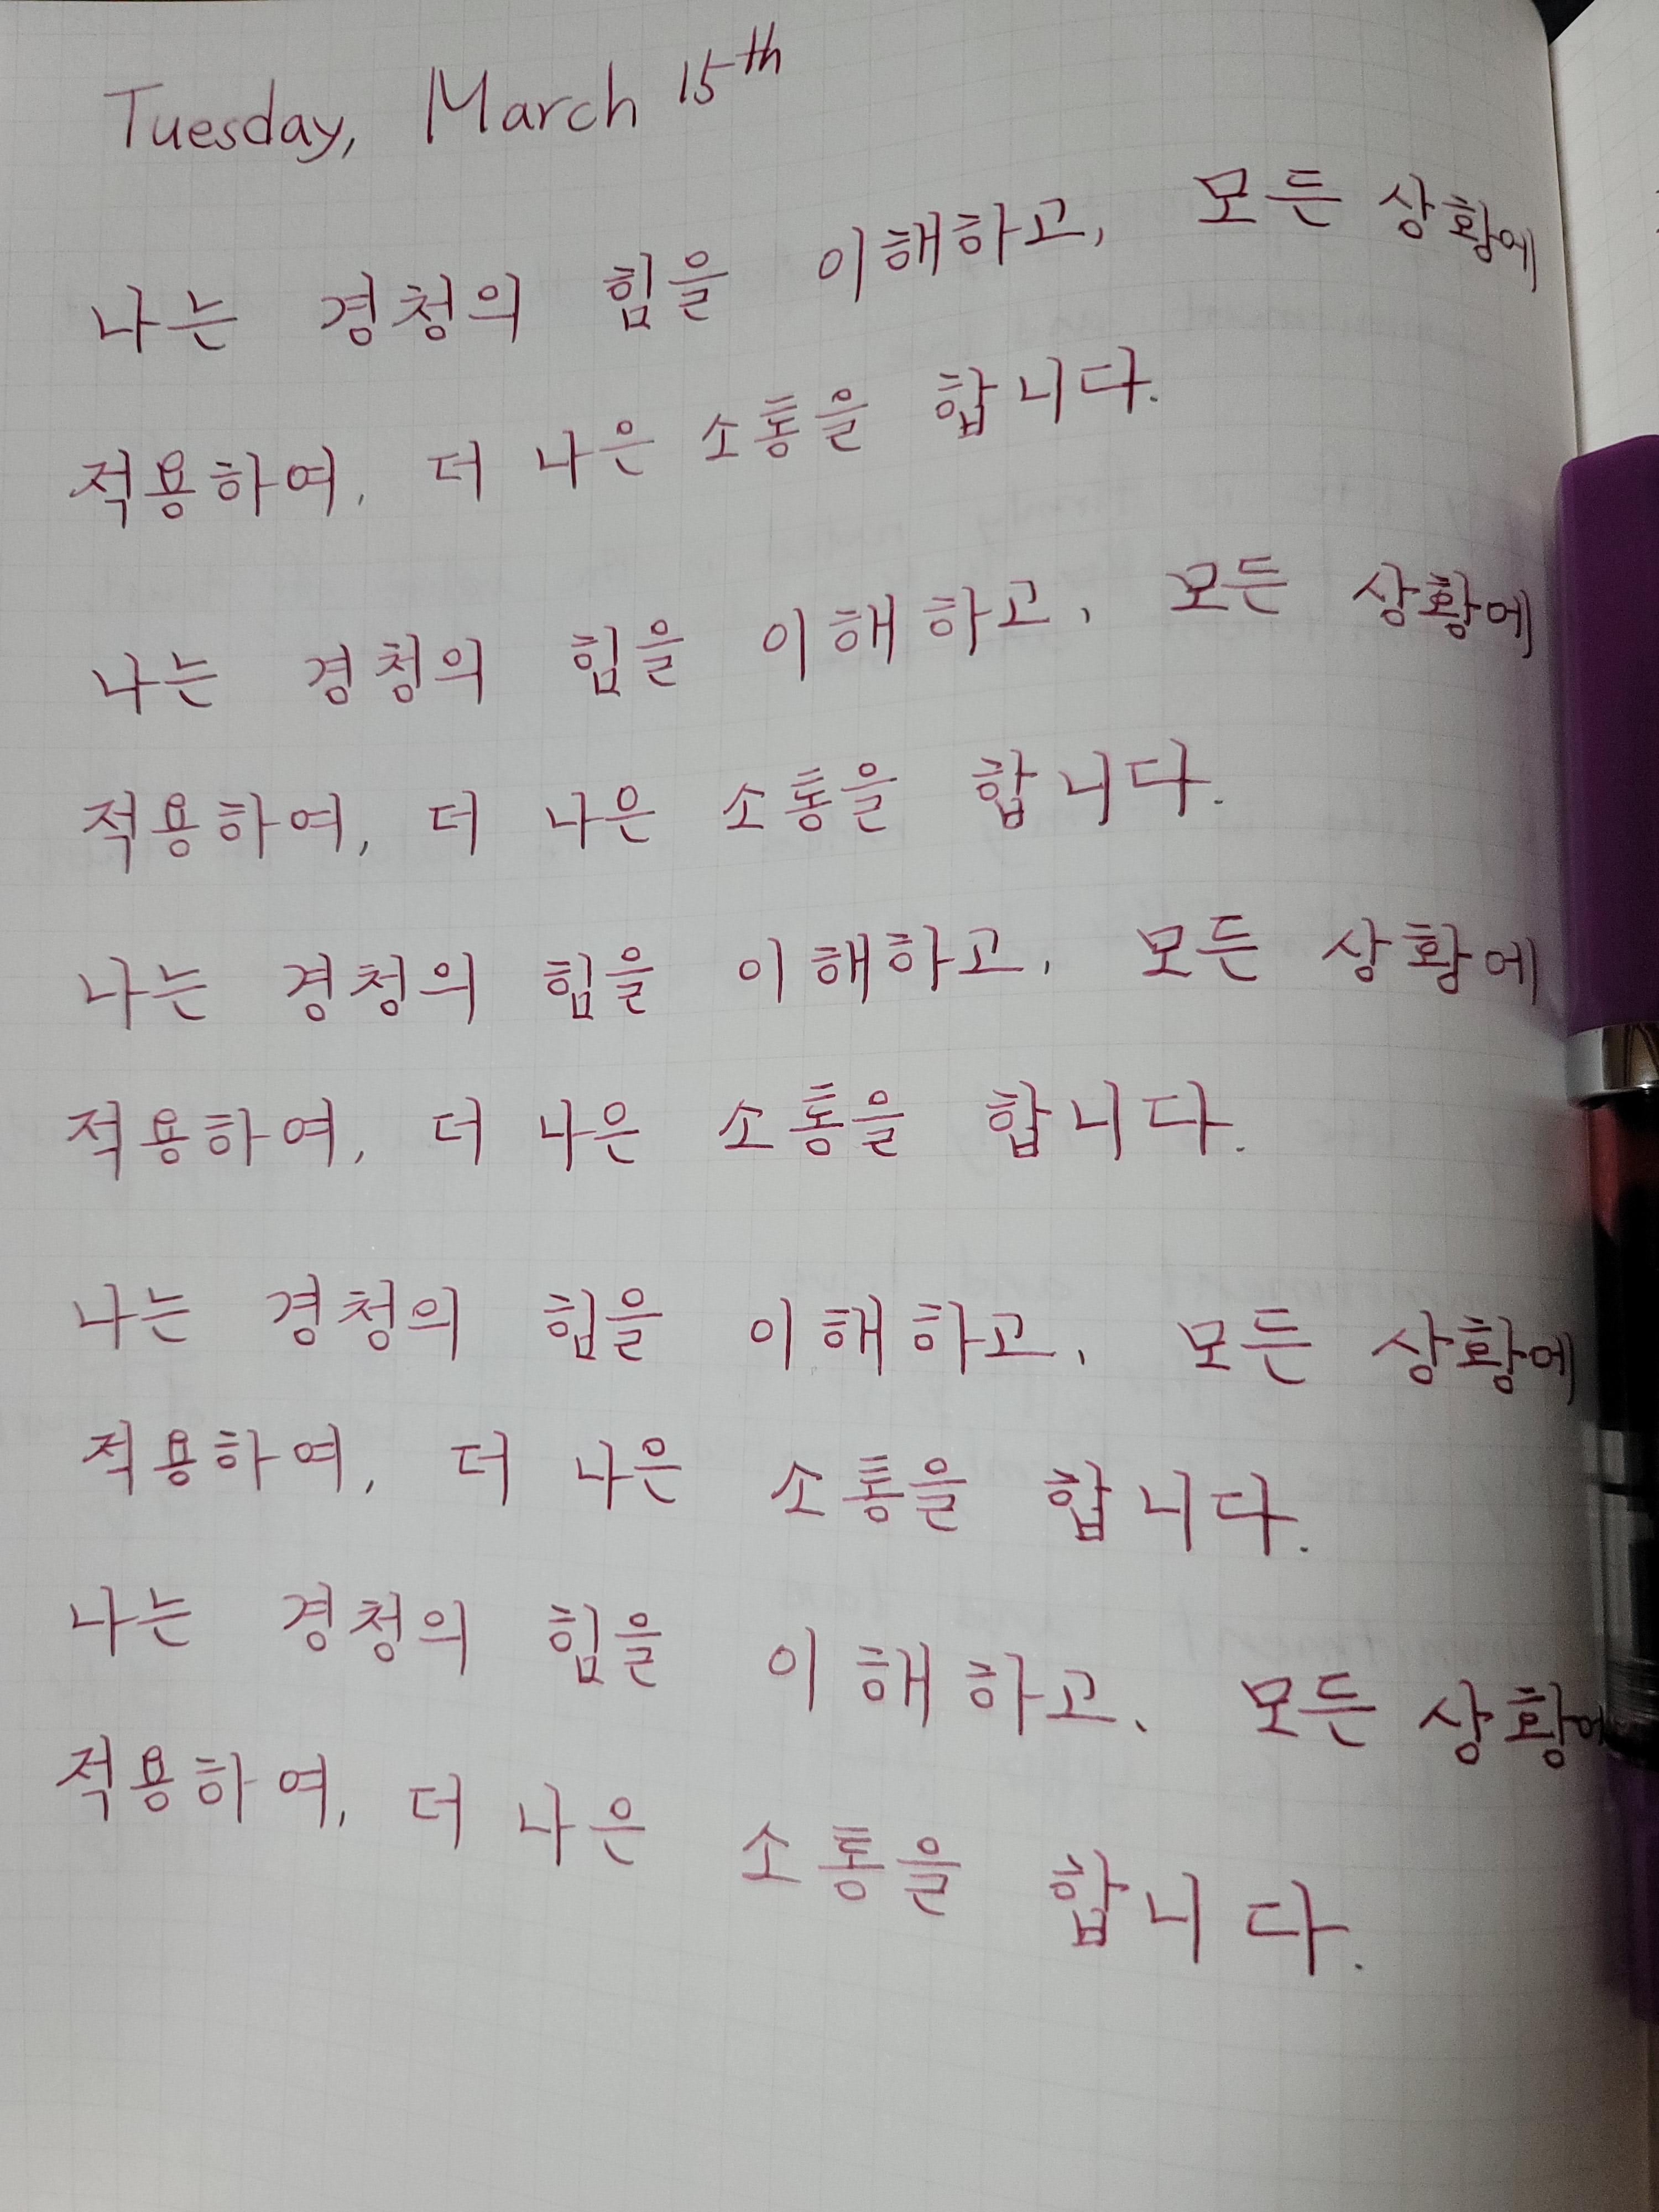 Tuesday, March 15th
나는 경청의 힘을 이해하고, 모든 상황에
적용하여, 더 나은 소통을 합니다.
나는 경청의 힘을 이해하고, 모든 상황에
적용하여, 더 나은 소통을 합니다.
나는 경청의 힘을 이해하고, 모든 상황에
적용하여, 더 나은 소통을 합니다.
나는 경청의 힘을 이해하고, 모든 상황에
적용하여, 더 나은 소통을 합니다.
나는 경청의 힘을 이해하고, 모든 상황에
적용하여, 더 나은 소통을 합니다.